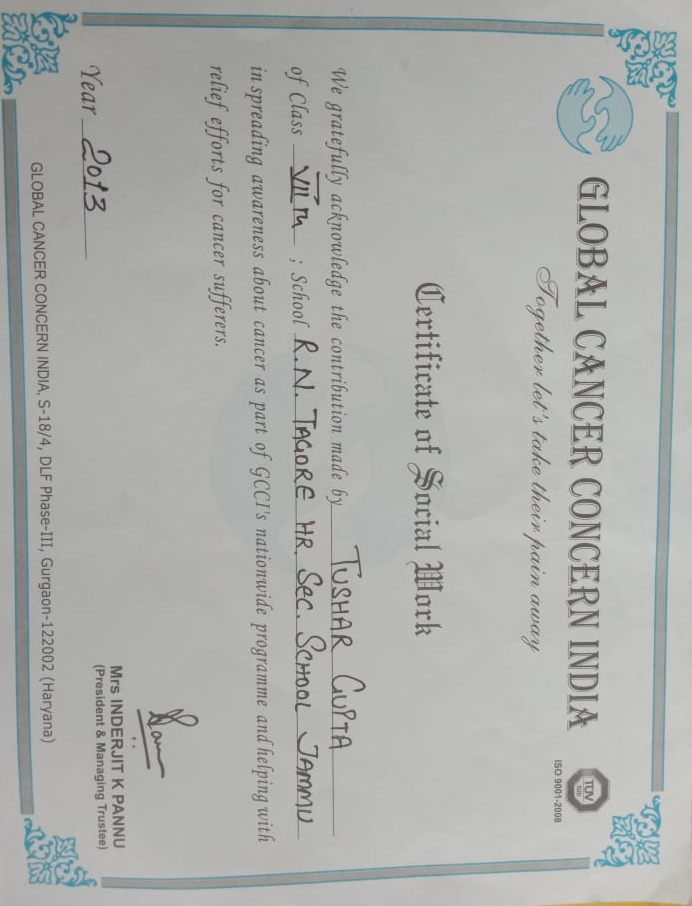 GLOBAL CANCER CONCERN INDIA
Together let's take their pain away
TUV
ISO 9001-2008
Certificate of Social Work
We gratefully acknowledge the contribution made by TUSHAR GUPTA
of Class VIIth ; School R.N. TAGORE HR. SEC. SCHOOL JAMMU
in spreading awareness about cancer as part of GCCI's nationwide programme and helping with
relief efforts for cancer sufferers.
Year 2013
Mrs INDERJIT K PANNU
(President & Managing Trustee)
GLOBAL CANCER CONCERN INDIA, S-18/4, DLF Phase-III, Gurgaon-122002 (Haryana)